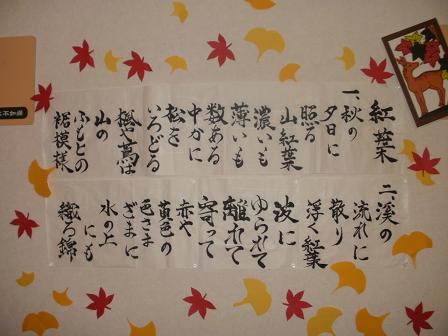 紅葉
一、秋の
夕日に
照る
山紅葉
濃いも
薄いも
数ある
中かに
松を
いろどる
楓や蔦は
山の
ふもとの
裾模様
二、溪の
流れに
散り
浮く紅葉
波に
ゆられて
離れて
寄って
赤や
黄色の
色さま
ざまに
水の上
にも
織る錦